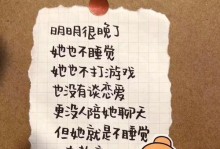 明明很晚了
她也不睡觉
她也不打游戏
也没有谈恋爱
更没人陪她聊天
但她就是不睡觉